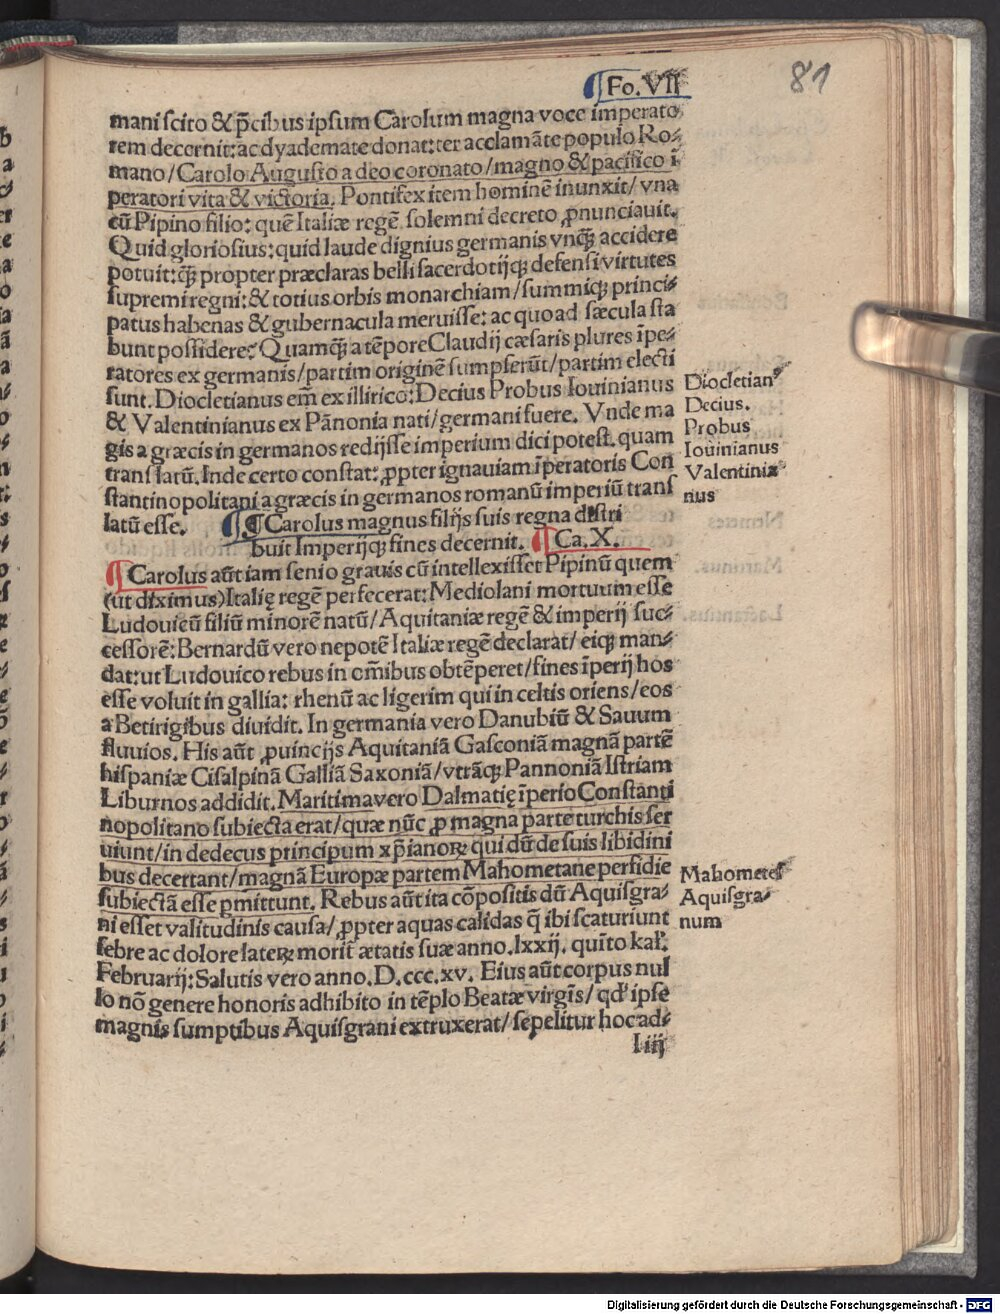 ¶Fo. VII
81
mani ſcito & p̄cibus ipſum Carolum magna voce imperato
rem decernit: ac dyademate donat: ter acclamāte populo Ro⸗
mano/Carolo Auguſto a deo coronato/magno & pacifico ī
peratori vita & victoria. Pontifex item hominē inunxit/ vna
cū Pipino filio: quē Italiæ regē ſolemni decreto ꝓnunciauit.
Quid glorioſius: quid laude dignius germanis vnqꝫ accidere
potuit: qꝫ propter præclaras belli ſacerdotijqꝫ defenſi virtutes
ſupremi regni: & totius orbis monarchiam/ſummiqꝫ princi⸗
patus habenas & gubernacula meruiſſe: ac quoad ſæcula ſta
bunt poſſidere? Quamqꝫ a tēpore Claudij cæſaris plures īpe⸗
ratores ex germanis/partim originē ſumpſerūt/partim electi
ſunt. Diocletianus em̄ ex illirico: Decius Probus Iouinianus
& Valentinianus ex Pānonia nati/germani fuere. Vnde ma
gis a græcis in germanos redijſſe imperium dici poteſt. quam
tranſlatū. Inde certo conſtat: ꝓpter ignauiam īperatoris Con
ſtantinopolitani a græcis in germanos romanū imperiū tranſ
latū eſſe. ¶¶Carolus magnus filijs ſuis regna diſtri
buit Imperijqꝫ fines decernit. ¶Ca. X.
¶Carolus aūt iam ſenio grauis cū intellexiſſet Pipinū quem
(ut diximus) Italię regē perfecerat: Mediolani mortuum eſſe
Ludouicū filiū minorē natū/Aquitaniæ regē & imperij ſuc⸗
ceſſorē: Bernardū vero nepotē Italiæ regē declarat/ eiqꝫ man⸗
dat: ut Ludouico rebus in om̄ibus obtēperet/fines īperij hos
eſſe voluit in gallia: rhenū ac ligerim qui in celtis oriens/eos
a Betirigibus diuidit. In germania vero Danubiū & Sauum
fluuios. His aūt ꝓuincijs Aquitaniā Gaſconiā magnā partē
hiſpaniæ Ciſalpinā Galliā Saxoniā/vtrāqꝫ Pannoniā Iſtriam
Liburnos addidit. Maritima vero Dalmatię īperio Conſtanti
nopolitano ſubiecta erat/quæ nūc ꝓ magna parte turchis ſer
uiunt/in dedecus principum xp̄ianoꝝ qui dū de ſuis libidini
bus decertant/magnā Europæ partem Mahometane perfidie
ſubiectā eſſe ꝑmittunt. Rebus aūt ita cōpoſitis dū Aquiſgra⸗
ni eſſet valitudinis cauſa/ꝓpter aquas calidas q̄ ibi ſcaturiunt
febre ac dolore lateꝝ morit̄ ætatis ſuæ anno. lxxij. quīto kal.
Februarij: Salutis vero anno. D.ccc.xv. Eius aūt corpus nul
lo nō genere honoris adhibito in tēplo Beatæ virgīs/ qd' ipſe
magnis ſumptibus Aquiſgrani extruxerat/ſepelitur hoc ad⸗
Diocletian⁹
Decius.
Probus
Iouinianus
Valentinia⸗
nus
Mahometeſ
Aquiſgra⸗
num
Digitalisierung gefördert durch die Deutsche Forschungsgemeinschaft - DFG